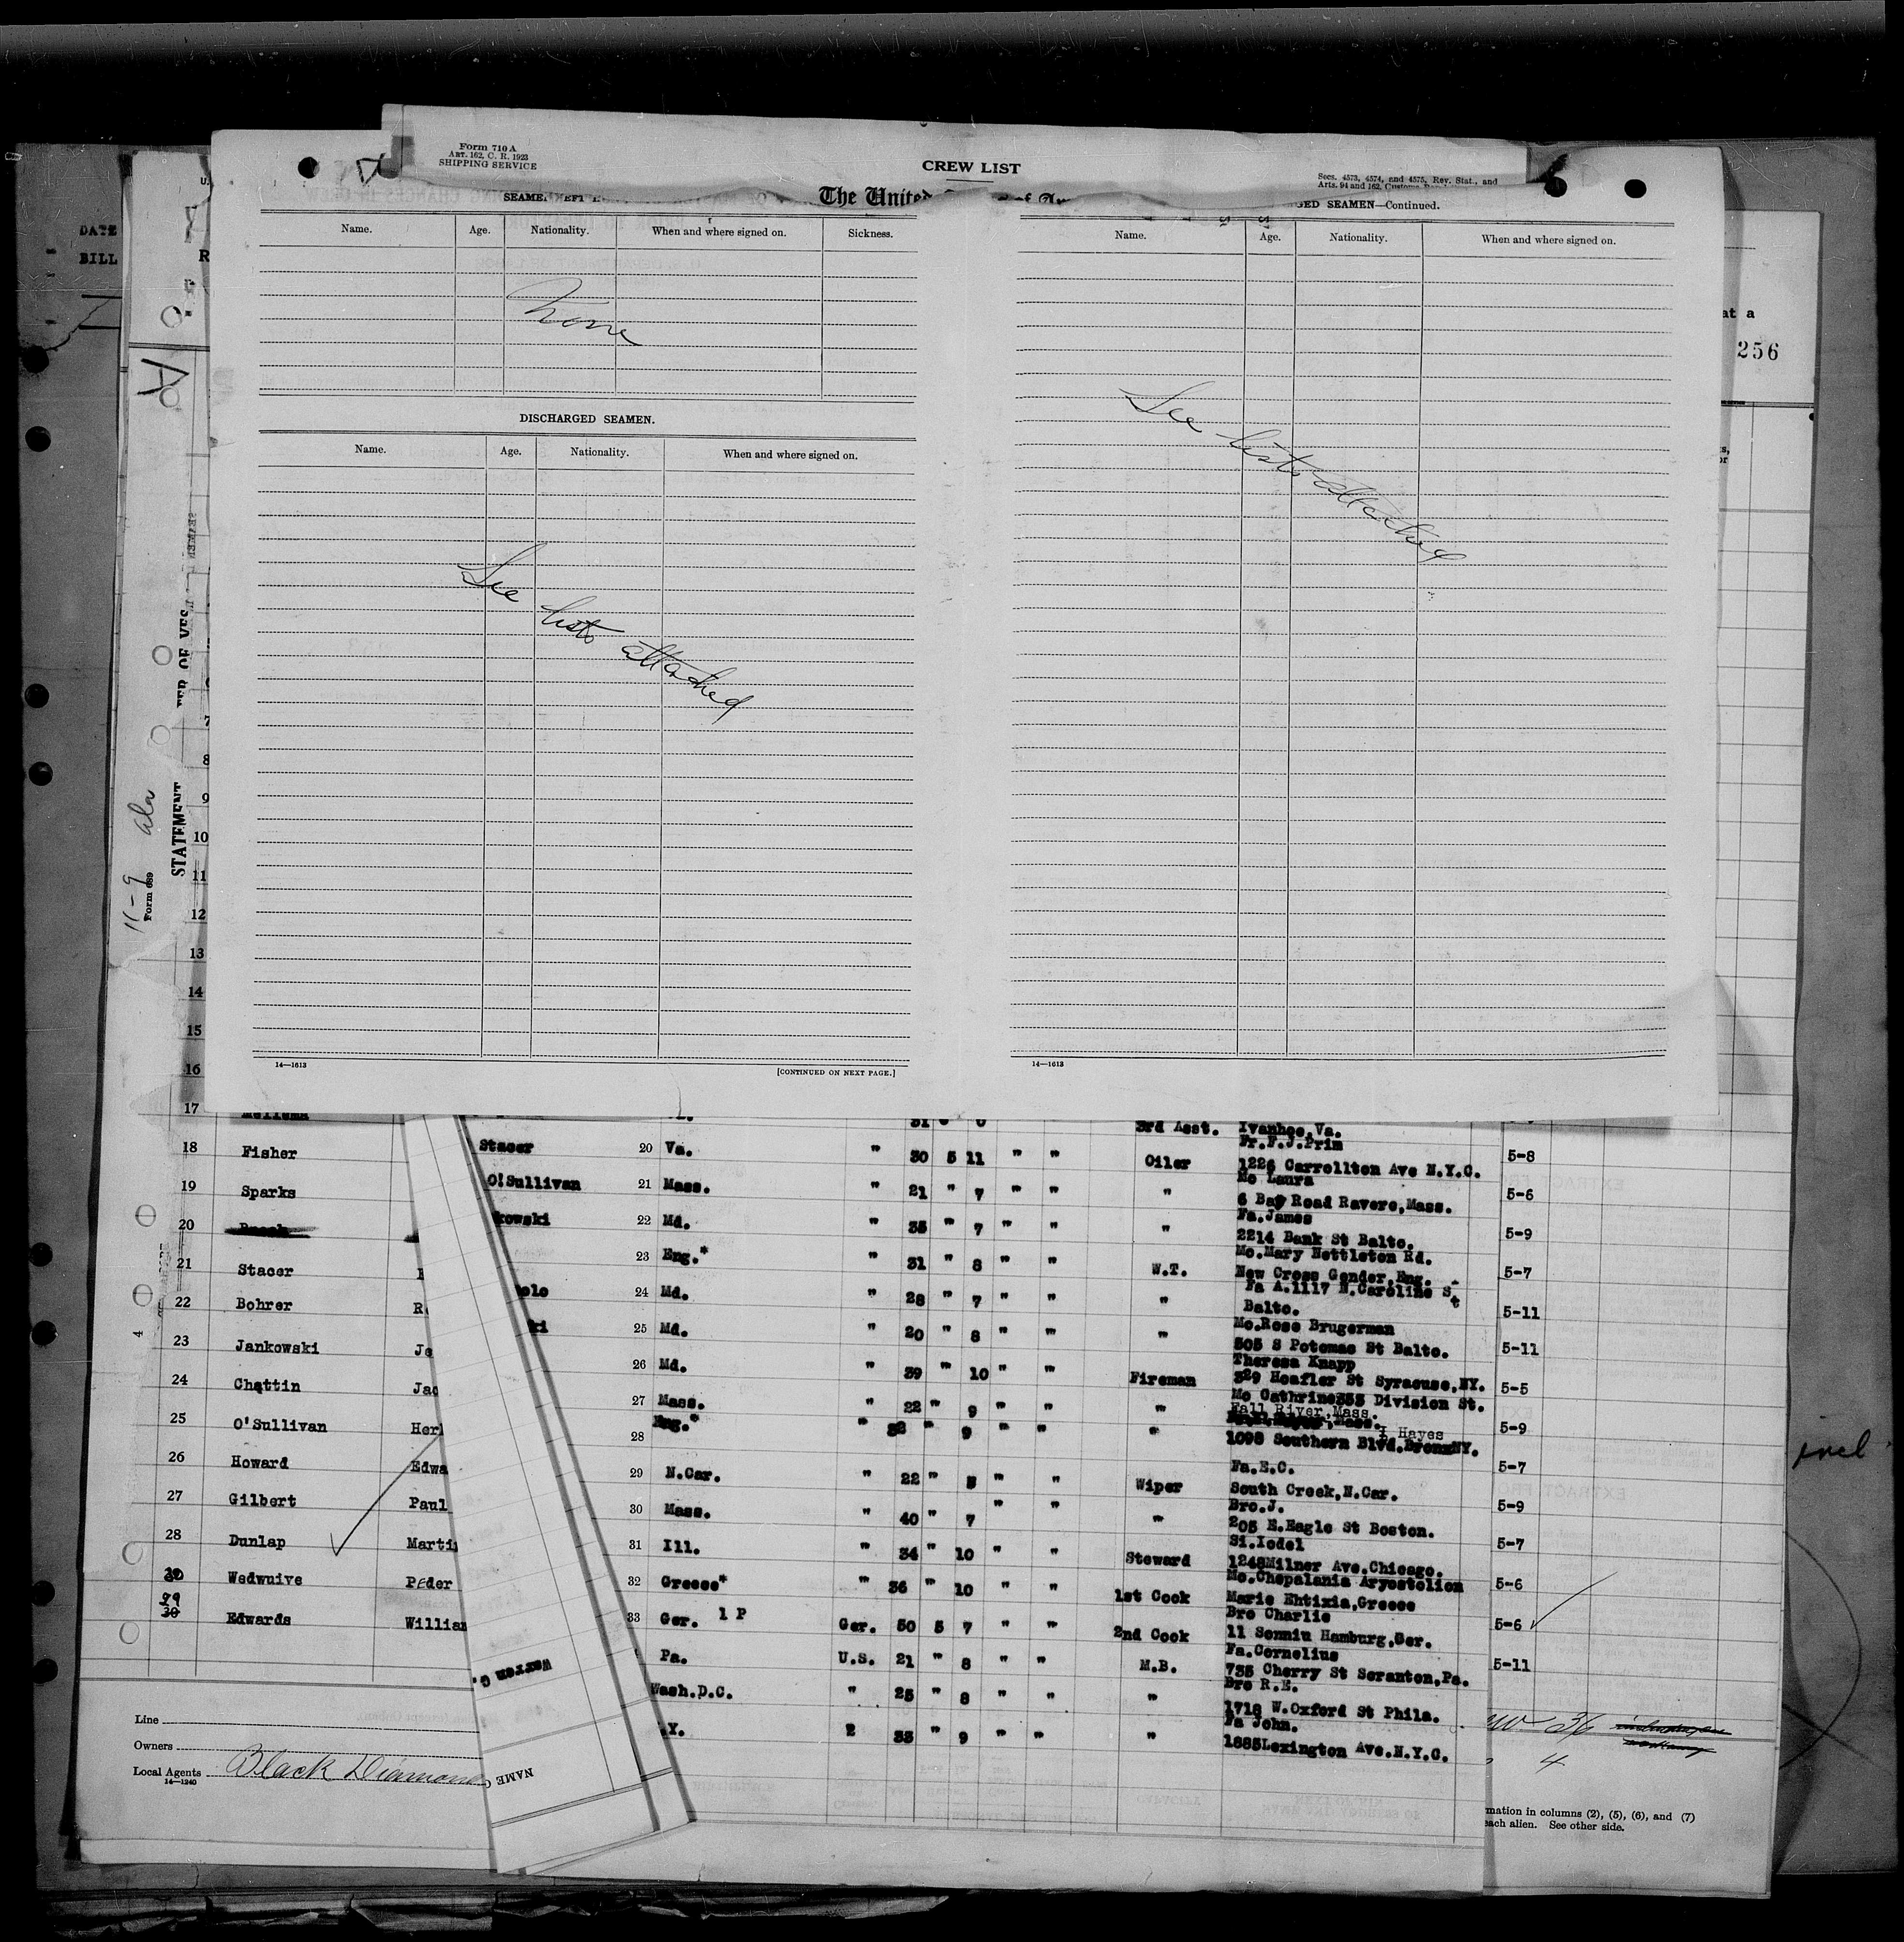 Form 710 A
ART. 162, C. R. 1923
SHIPPING SERVICE
CREW LIST
Secs. 4573, 4574, and 4575, Rev. Stat., and
Arts. 94 and 162, Customs
The United
SEAMEN LEFT
Name. Age. Nationality. When and where signed on. Sickness.
None
DISCHARGED SEAMEN.
Name. Age. Nationality. When and where signed on.
See lists attached
14—1613
[CONTINUED ON NEXT PAGE.]
SEAMEN—Continued.
Name. Age. Nationality. When and where signed on.
See lists attached
14—1613
DATE
BILL
A
at a
256
STATEMENT
Form 689
11-9
7
8
9
10
11
12
13
14
15
16
17
18 Fisher
19 Sparks
20
21 Stacer
22 Bohrer
23 Jankowski
24 Chattin
25 O'Sullivan
26 Howard Edwa
27 Gilbert Paul
28 Dunlap
Wedwuive Peder
29
30 Edwards
Line
Owners
Local Agents Black Diamond
14—1240
NAME
3rd Asst. Ivanhoe,Va.
Fr.F.J.Prim
Stacer 20 Va. " 30 5 11 " " Oiler 1226 Carrollton Ave N.Y.C. 5-8
Mo Laura
O'Sullivan 21 Mass. " 21 " 7 " " " 6 Bay Road Ravere,Mass. 5-6
Fa.James
kowski 22 Md. " 35 " 7 " " " 2214 Bank St Balto. 5-9
Mo.Mary Nettleton Rd.
23 Eng.* " 31 " 8 " " W.T. New Cross Gender,Eng. 5-7
Fa A.1117 N.Caroline St
24 Md. " 28 " 7 " " " Balto. 5-11
Mo.Rose Brugerman
25 Md. " 20 " 8 " " " 505 S Potomac St Balto. 5-11
Theresa Knapp
26 Md. " 39 " 10 " " Fireman 329 Hoafler St Syracuse,NY. 5-5
Mo Cathrine353 Division St.
27 Mass. " 22 " 9 " " " Fall River,Mass. 5-9
Hayes
28 Eng.* " " 9 " " " 1098 Southern Blvd.BronxNY. 5-7
Fa.E.C.
29 N.Car. " 22 " 5 " " Wiper South Creek,N.Car. 5-9
Bro.J.
30 Mass. " 40 " 7 " " " 205 E.Eagle St Boston. 5-7
Si.Iodel
31 Ill. " 34 " 10 " " Steward 1248Milner Ave.Chicago. 5-6
Mo.Chepalania Aryostolion
32 Greece* " 36 " 10 " " 1st Cook Marie Ehtixia,Greece 5-6
Bro Charlie
33 Ger. 1 P Ger. 50 5 7 " " 2nd Cook 11 Sonnin Hamburg,Ger. 5-11
Fa.Cornelius
Pa. U.S. 21 " 8 " " M.B. 735 Cherry St Scranton,Pa.
Bro R.E.
Wash.D.C. " 25 " 8 " " " 1718 W.Oxford St Phila.
Fa John.
.Y. 2 33 " 9 " " " 1885Lexington Ave.N.Y.C.
36
4
mation in columns (2), (5), (6), and (7)
each alien. See other side.